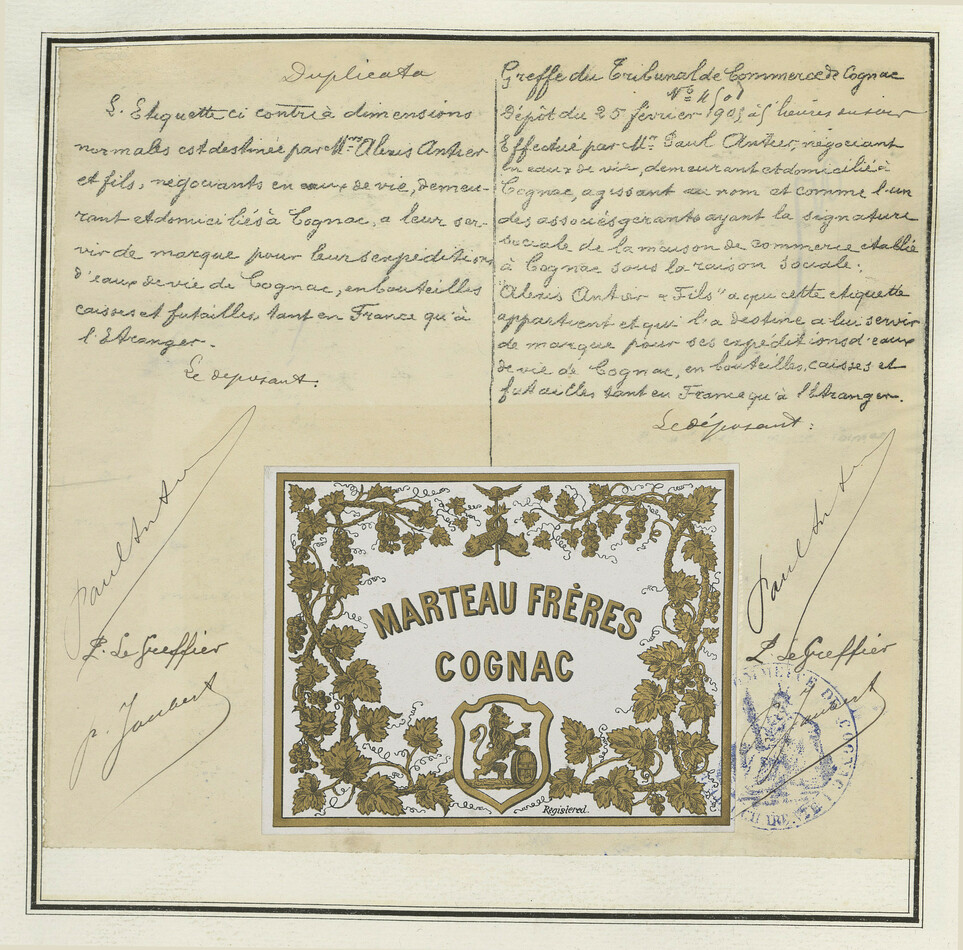 Duplicata
L'Etiquette ci contre à dimensions
normales est destinée par Mrs Alexis Antier
et fils, négociants en eaux de vie, demeu-
rant et domiciliés à Cognac, a leur ser-
vir de marque pour leurs expéditions
d'eaux de vie de Cognac, en bouteilles
caisses et futailles, tant en France qu'à
l'Etranger.
Le deposant.
Paul Antier
P. Le Greffier
P. Joubert
Greffe du Tribunal de Commerce de Cognac
No 4501
Dépôt du 25 février 1905 à 5 heures du soir
Effectué par Mr Paul Antier, négociant
en eaux de vie, demeurant et domicilié à
Cognac, agissant au nom et comme l'un
des associés gerants ayant la signature
sociale de la maison de commerce établie
à Cognac sous la raison sociale:
"Alexis Antier & Fils" a qui cette etiquette
appartient et qui l'a destine a lui servir
de marque pour ses expeditions d'eaux
de vie de Cognac, en bouteilles, caisses et
futailles tant en France qu'à l'étranger.
Le déposant:
Paul Antier
P. Le Greffier
MARTEAU FRÈRES
COGNAC
Registered.
COMMERCE DE COGNAC
CHARENTE